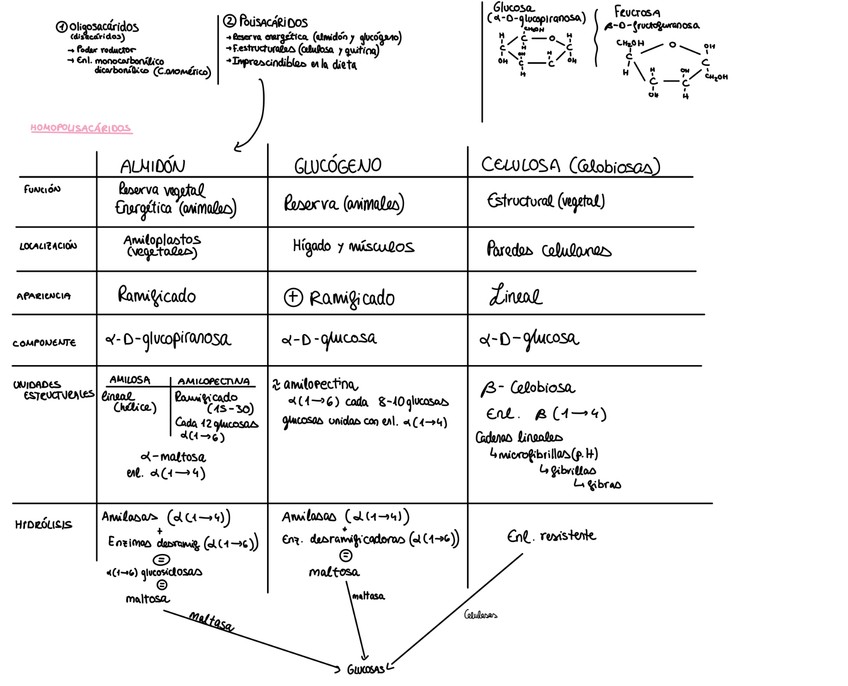 ① Oligosacáridos
(disacáridos)
→ Poder reductor
→ Enl. monocarbonílico
dicarbonílico (C.anomérico)
② POLISACÁRIDOS
→ Reserva energética (almidón y glucógeno)
→ F.estructurales (celulosa y quitina)
→ Imprescindibles en la dieta
Glucosa
(α-D-glucopiranosa)
CH₂OH
H C O H
C C
OH C C OH
OH H
H OH
FRUCTOSA
β-D-fructofuranosa
CH₂OH O OH
C C
H CH₂OH
H OH
C C
OH H
HOMOPOLISACÁRIDOS
ALMIDÓN GLUCÓGENO CELULOSA (Celobiosas)
FUNCIÓN
Reserva vegetal
Energética (animales)
Reserva (animales)
Estructural (vegetal)
LOCALIZACIÓN
Amiloplastos
(vegetales)
Hígado y músculos
Paredes celulares
APARIENCIA
Ramificado
⊕ Ramificado
Lineal
COMPONENTE
α-D-glucopiranosa
α-D-glucosa
α-D-glucosa
UNIDADES
ESTRUCTURALES
AMILOSA
lineal
(hélice)
AMILOPECTINA
Ramificado
(15-30)
Cada 12 glucosas
α(1→6)
α-maltosa
enl. α(1→4)
≈ amilopectina
α(1→6) cada 8-10 glucosas
glucosas unidas con enl. α(1→4)
β- Celobiosa
Enl. β(1→4)
Cadenas lineales
↳ microfibrillas (p.H)
↳ fibrillas
↳ fibras
HIDRÓLISIS
Amilasas (α(1→4))
+
Enzimas desramif (α(1→6))
=
α(1→6) glucosidosas
=
maltosa
Amilasas (α(1→4))
+
Enz. desramificadoras (α(1→6))
=
maltosa
Enl. resistente
maltasa
maltasa
Celulasas
GLUCOSAS